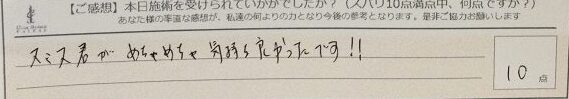 【ご感想】本日施術を受けられていかがでしたか？（ズバリ10点満点中、何点ですか？）
あなた様の率直な感想が、私達の何よりの力となり今後の参考となります。是非ご協力お願いします
スミス君が めちゃめちゃ 気持ち良かったです!!
10 点